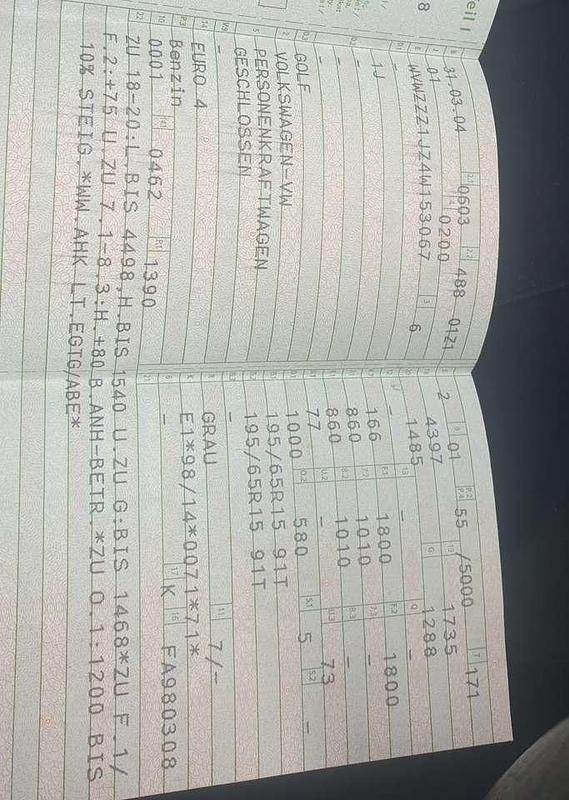 eil I
8
31.03.04 0603 488 0121
01 0200
WVWZZZ1JZ4W153067 6
1J
-
-
-
GOLF
VOLKSWAGEN-VW
PERSONENKRAFTWAGEN
GESCHLOSSEN
-
EURO 4
Benzin
0001 0462 1390
2 01 55 /5000 171
4397 1735
1485 - 1288
- -
166 1800 1800
860 1010 -
860 1010 -
77 - 73
1000 580 5 -
195/65R15 91T
195/65R15 91T
-
GRAU 7/-
E1*98/14*0071*71*
- K FA980308
ZU 18-20:L.BIS 4498,H.BIS 1540 U.ZU G:BIS 1468*ZU F.1/
F.2:+75 U.ZU 7.1-8.3:H.+80 B.ANH-BETR.*ZU O.1:1200 BIS
10% STEIG.*WW.AHK LT.EGTG/ABE*